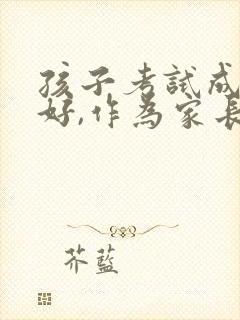 孩子考試成
好,作為家長
芥藍